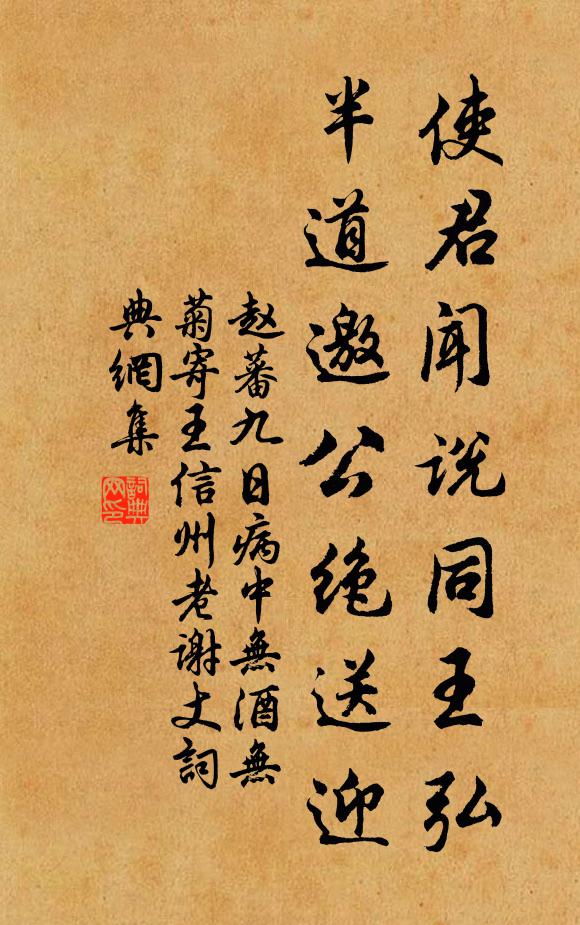 使君闻说同王弘
半道邀公绝送迎
赵蕃九日病中無酒無
菊寄王信州老谢丈词
典網集
詞典网印